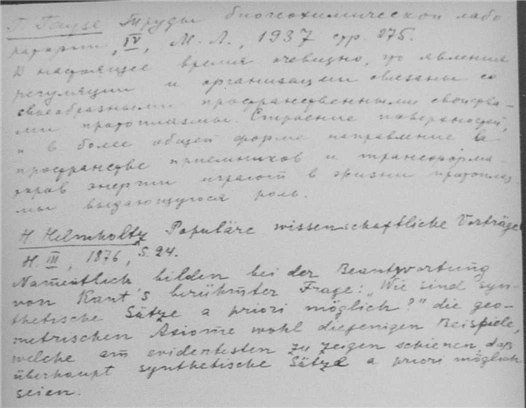 Г. Гаузе Труды биогеохимической лабо
ратории, IV, М.Л., 1937 стр. 275.
В настоящее время очевидно, что явления
регуляции и организации связаны со
своеобразными пространственными свойства-
ми протоплазмы. Строение поверхностей,
и в более общей форме направление в
пространстве приемников и трансформа-
торов энергии играют в жизни протоплаз
мы выдающуюся роль.
H. Helmholtz Populäre wissenschaftliche Vorträge
H. III, 1876, S. 24.
Namentlich bilden bei der Beantwortung
von Kant's berühmter Frage: „Wie sind syn-
thetische Sätze a priori möglich?" die geo-
metrischen Axiome wohl diejenigen Beispiele,
welche am evidentesten zu zeigen schienen, daß
überhaupt synthetische Sätze a priori möglich
seien.